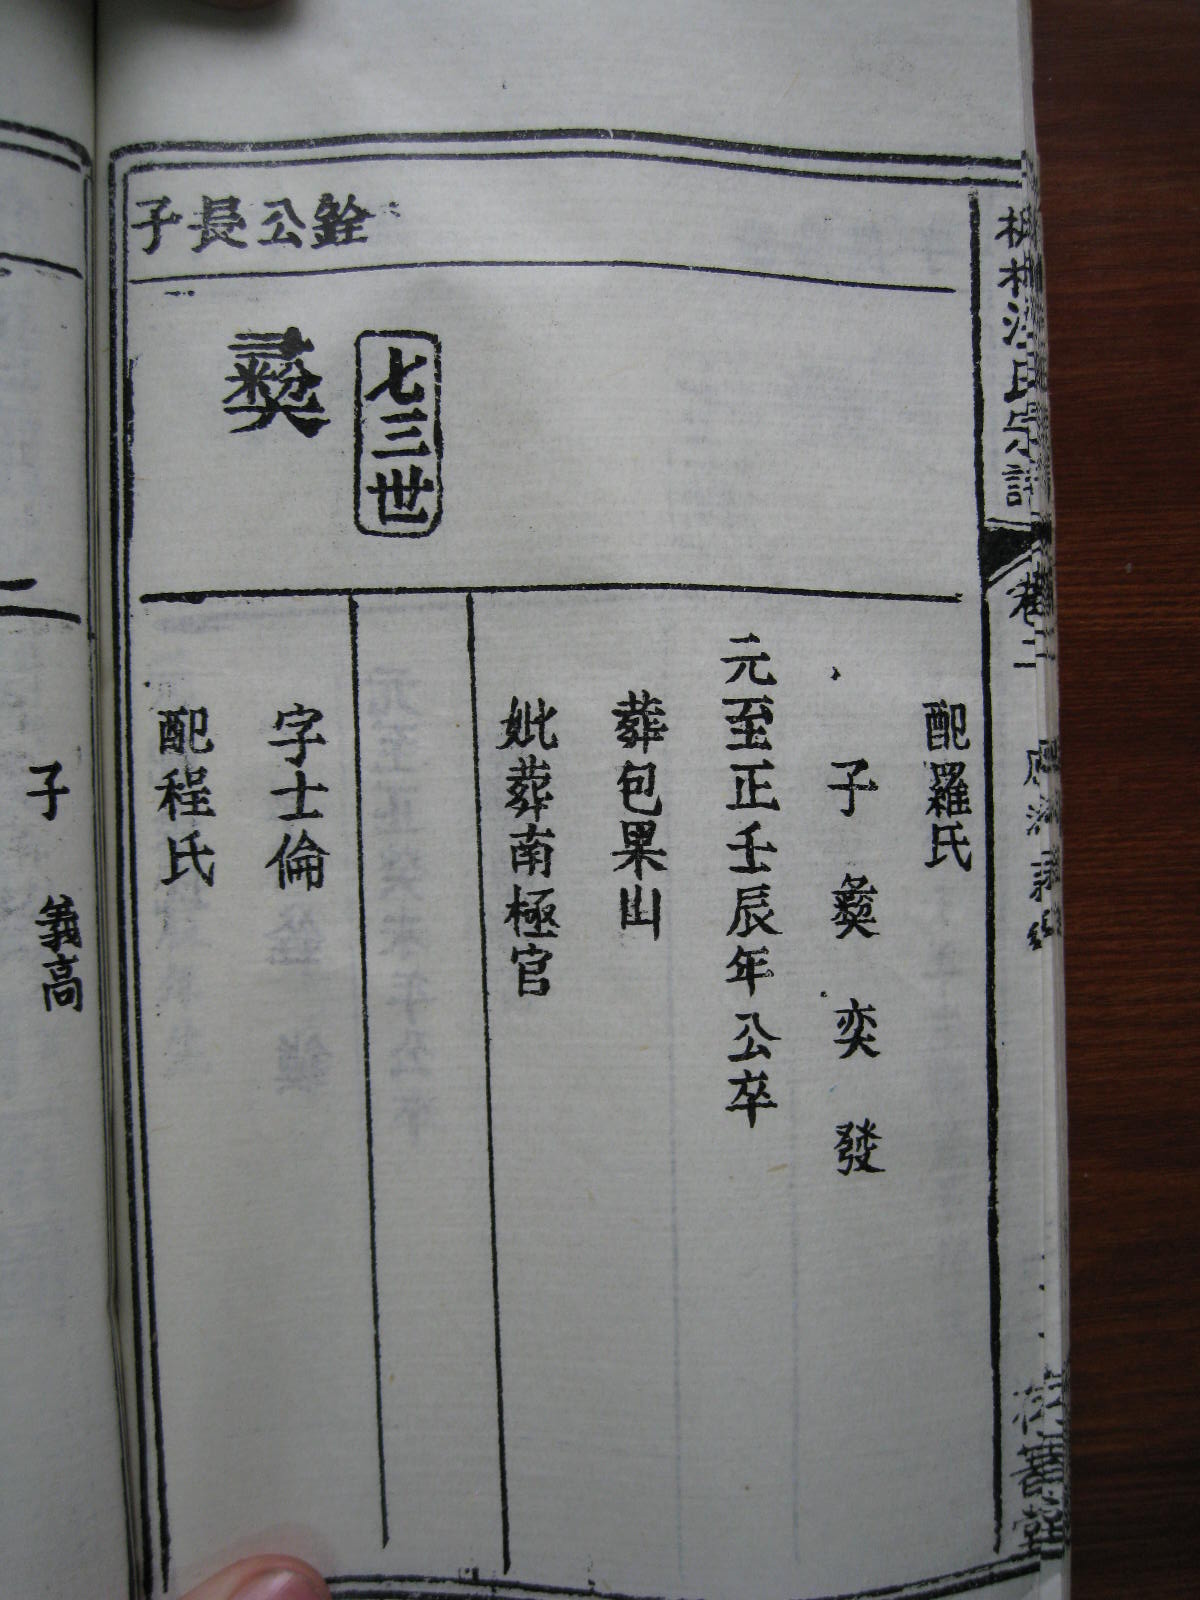 氏宗譜
卷二
善堂
銓公長子
七三世
彝
配羅氏
子 彝 奕 發
元至正壬辰年公卒
葬包果山
妣葬南極官
字士倫
配程氏
子 義高